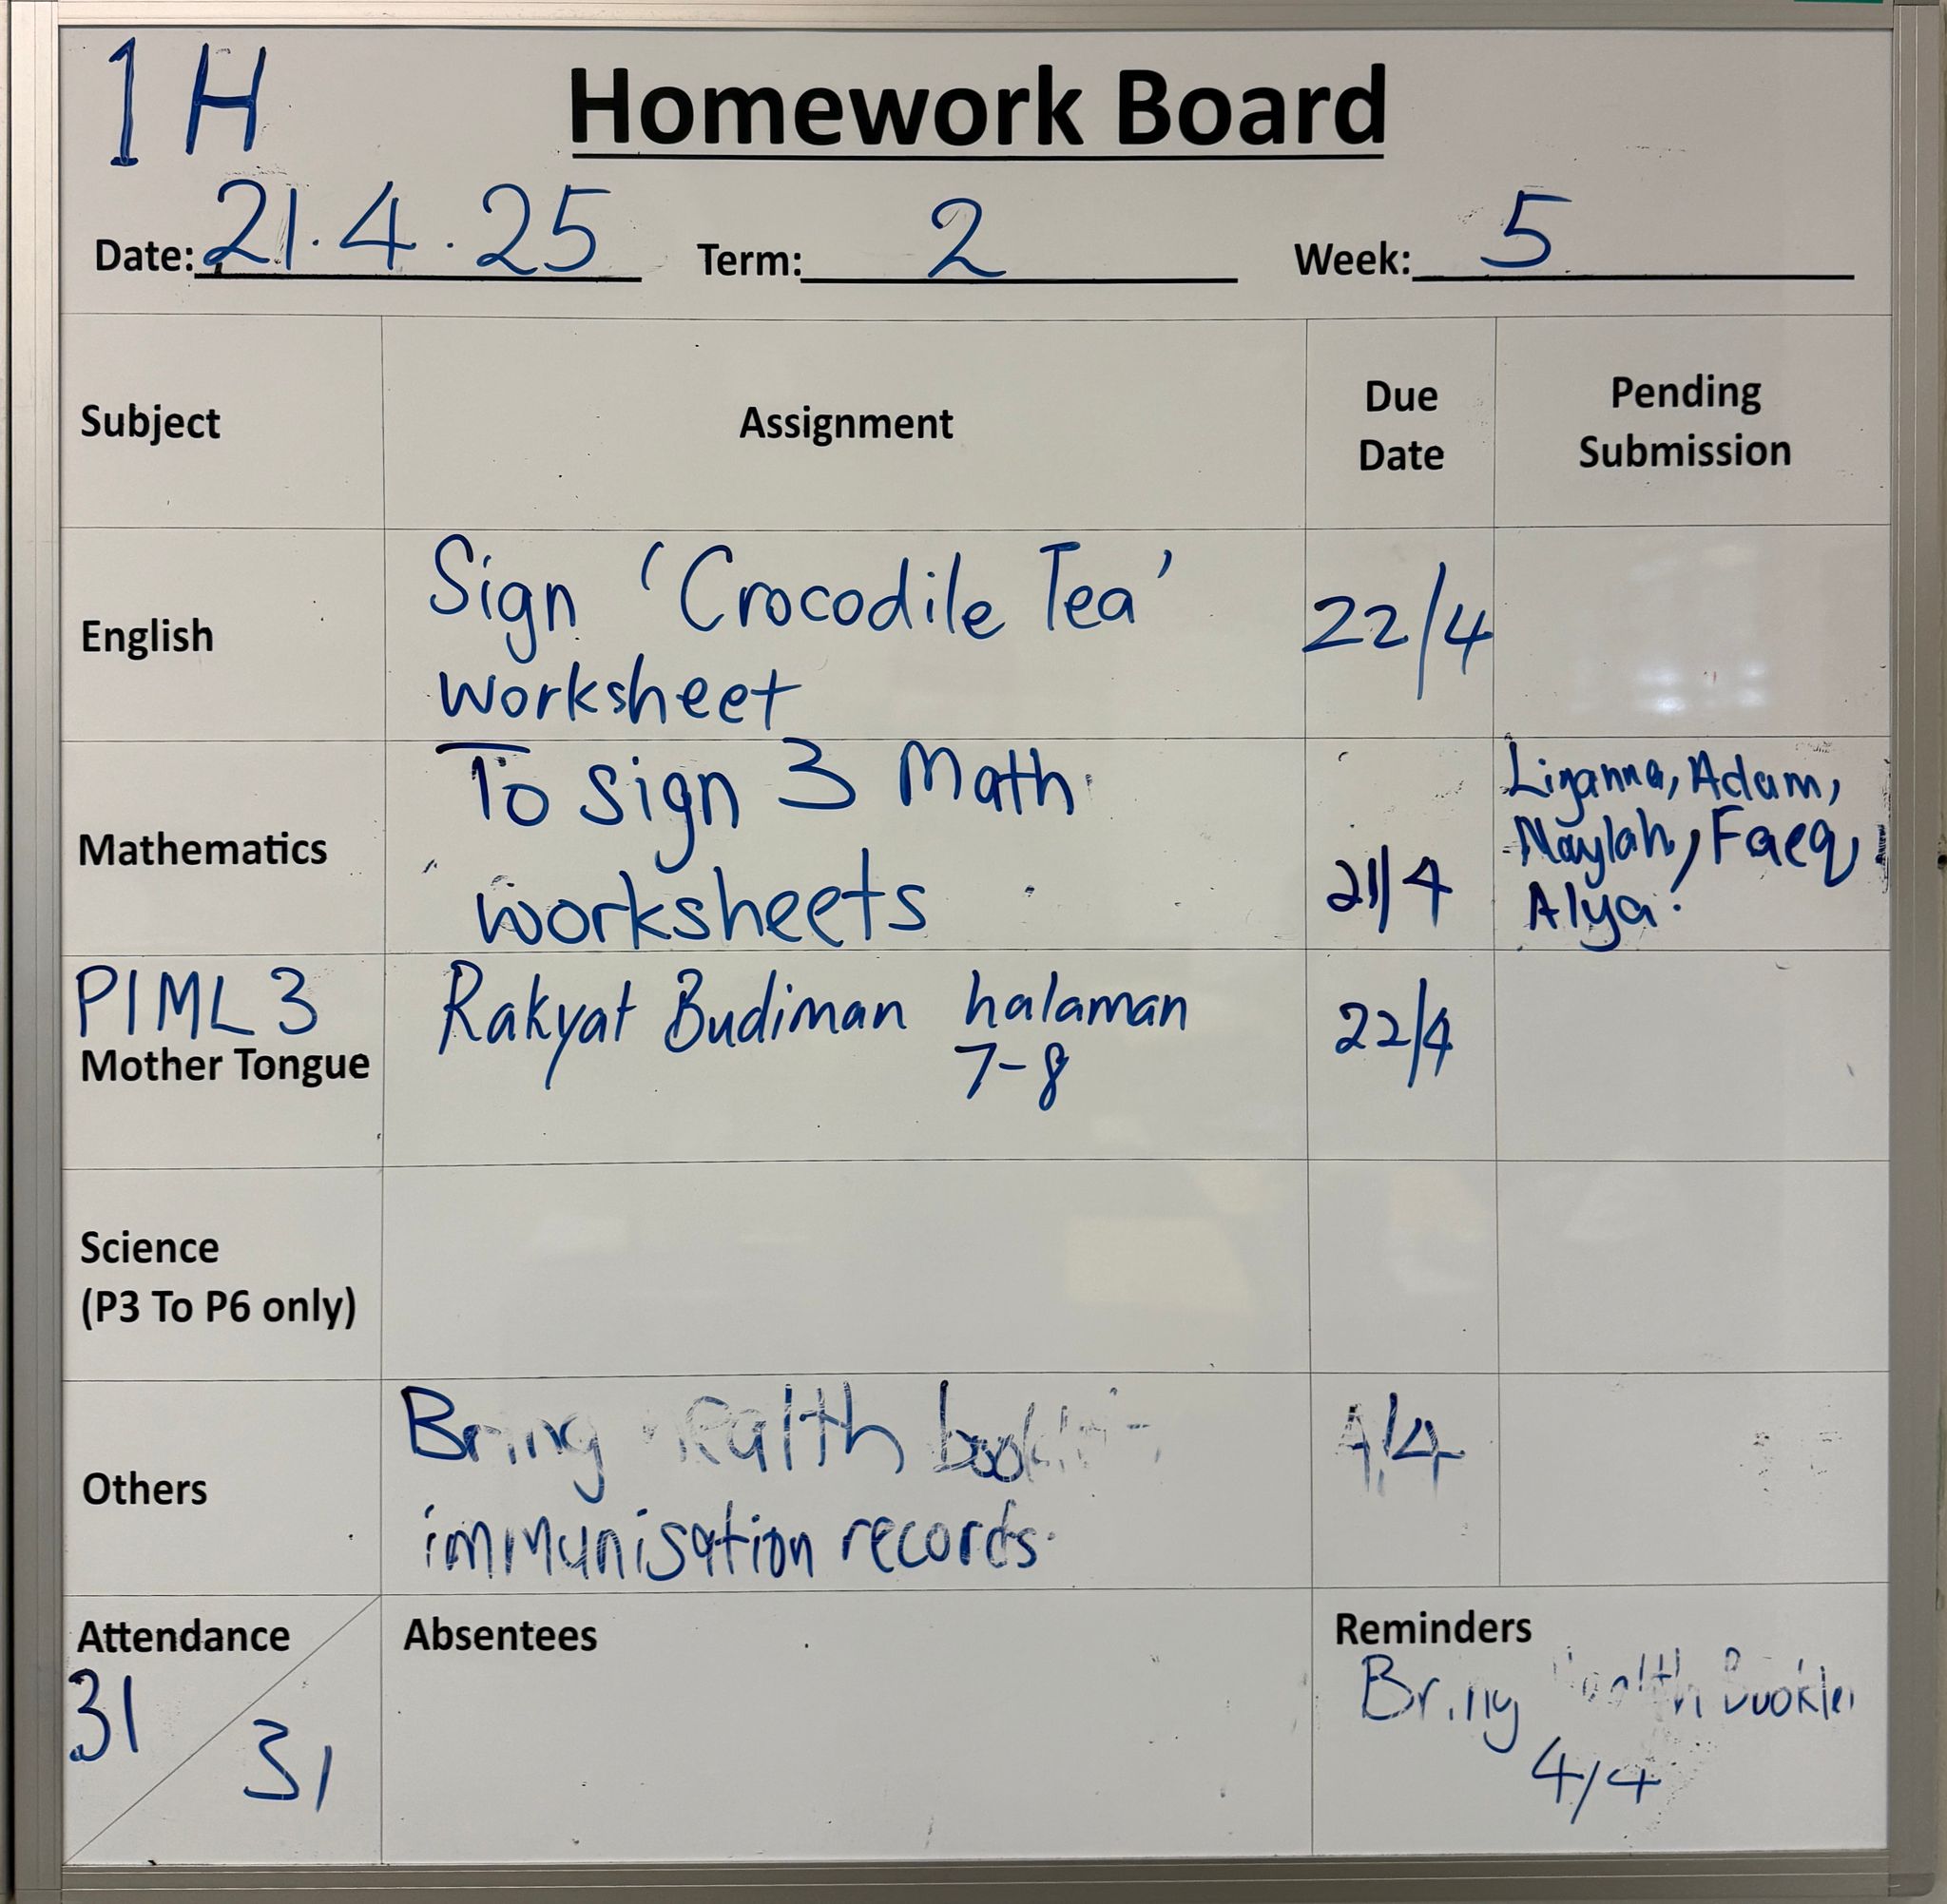 1H
Homework Board
Date: 21.4.25 Term: 2 Week: 5
Subject Assignment Due Date Pending Submission
English Sign 'Crocodile Tea' 22/4
worksheet
Mathematics To sign 3 Math
worksheets 21/4
Adam,
Naylah, Faeq,
Alya.
P1ML3
Mother Tongue
Rakyat Budiman halaman 22/4
7-8
Science
(P3 To P6 only)
Others
Bring health
immunisation records.
Attendance
31
31
Absentees
Reminders
Bring Health Booklet
4/4